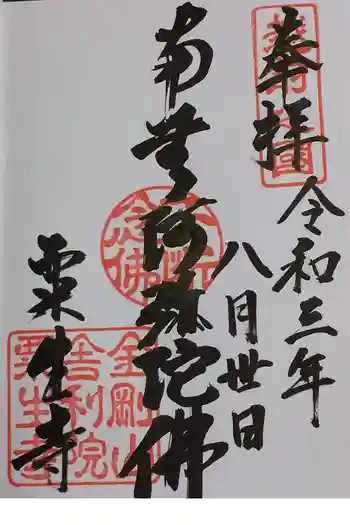 奉拝
令和三年
八月丗日
南無阿弥陀佛
粟生寺
金剛山
舎利院
粟生寺